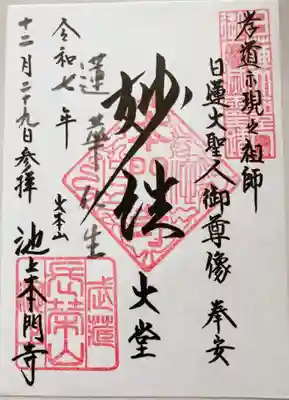 孝道示現之祖師
日蓮大聖人御尊像 奉安
妙法
大堂
蓮華化生
大本山
池上本門寺
令和七年
十二月二十九日参拝
長榮山